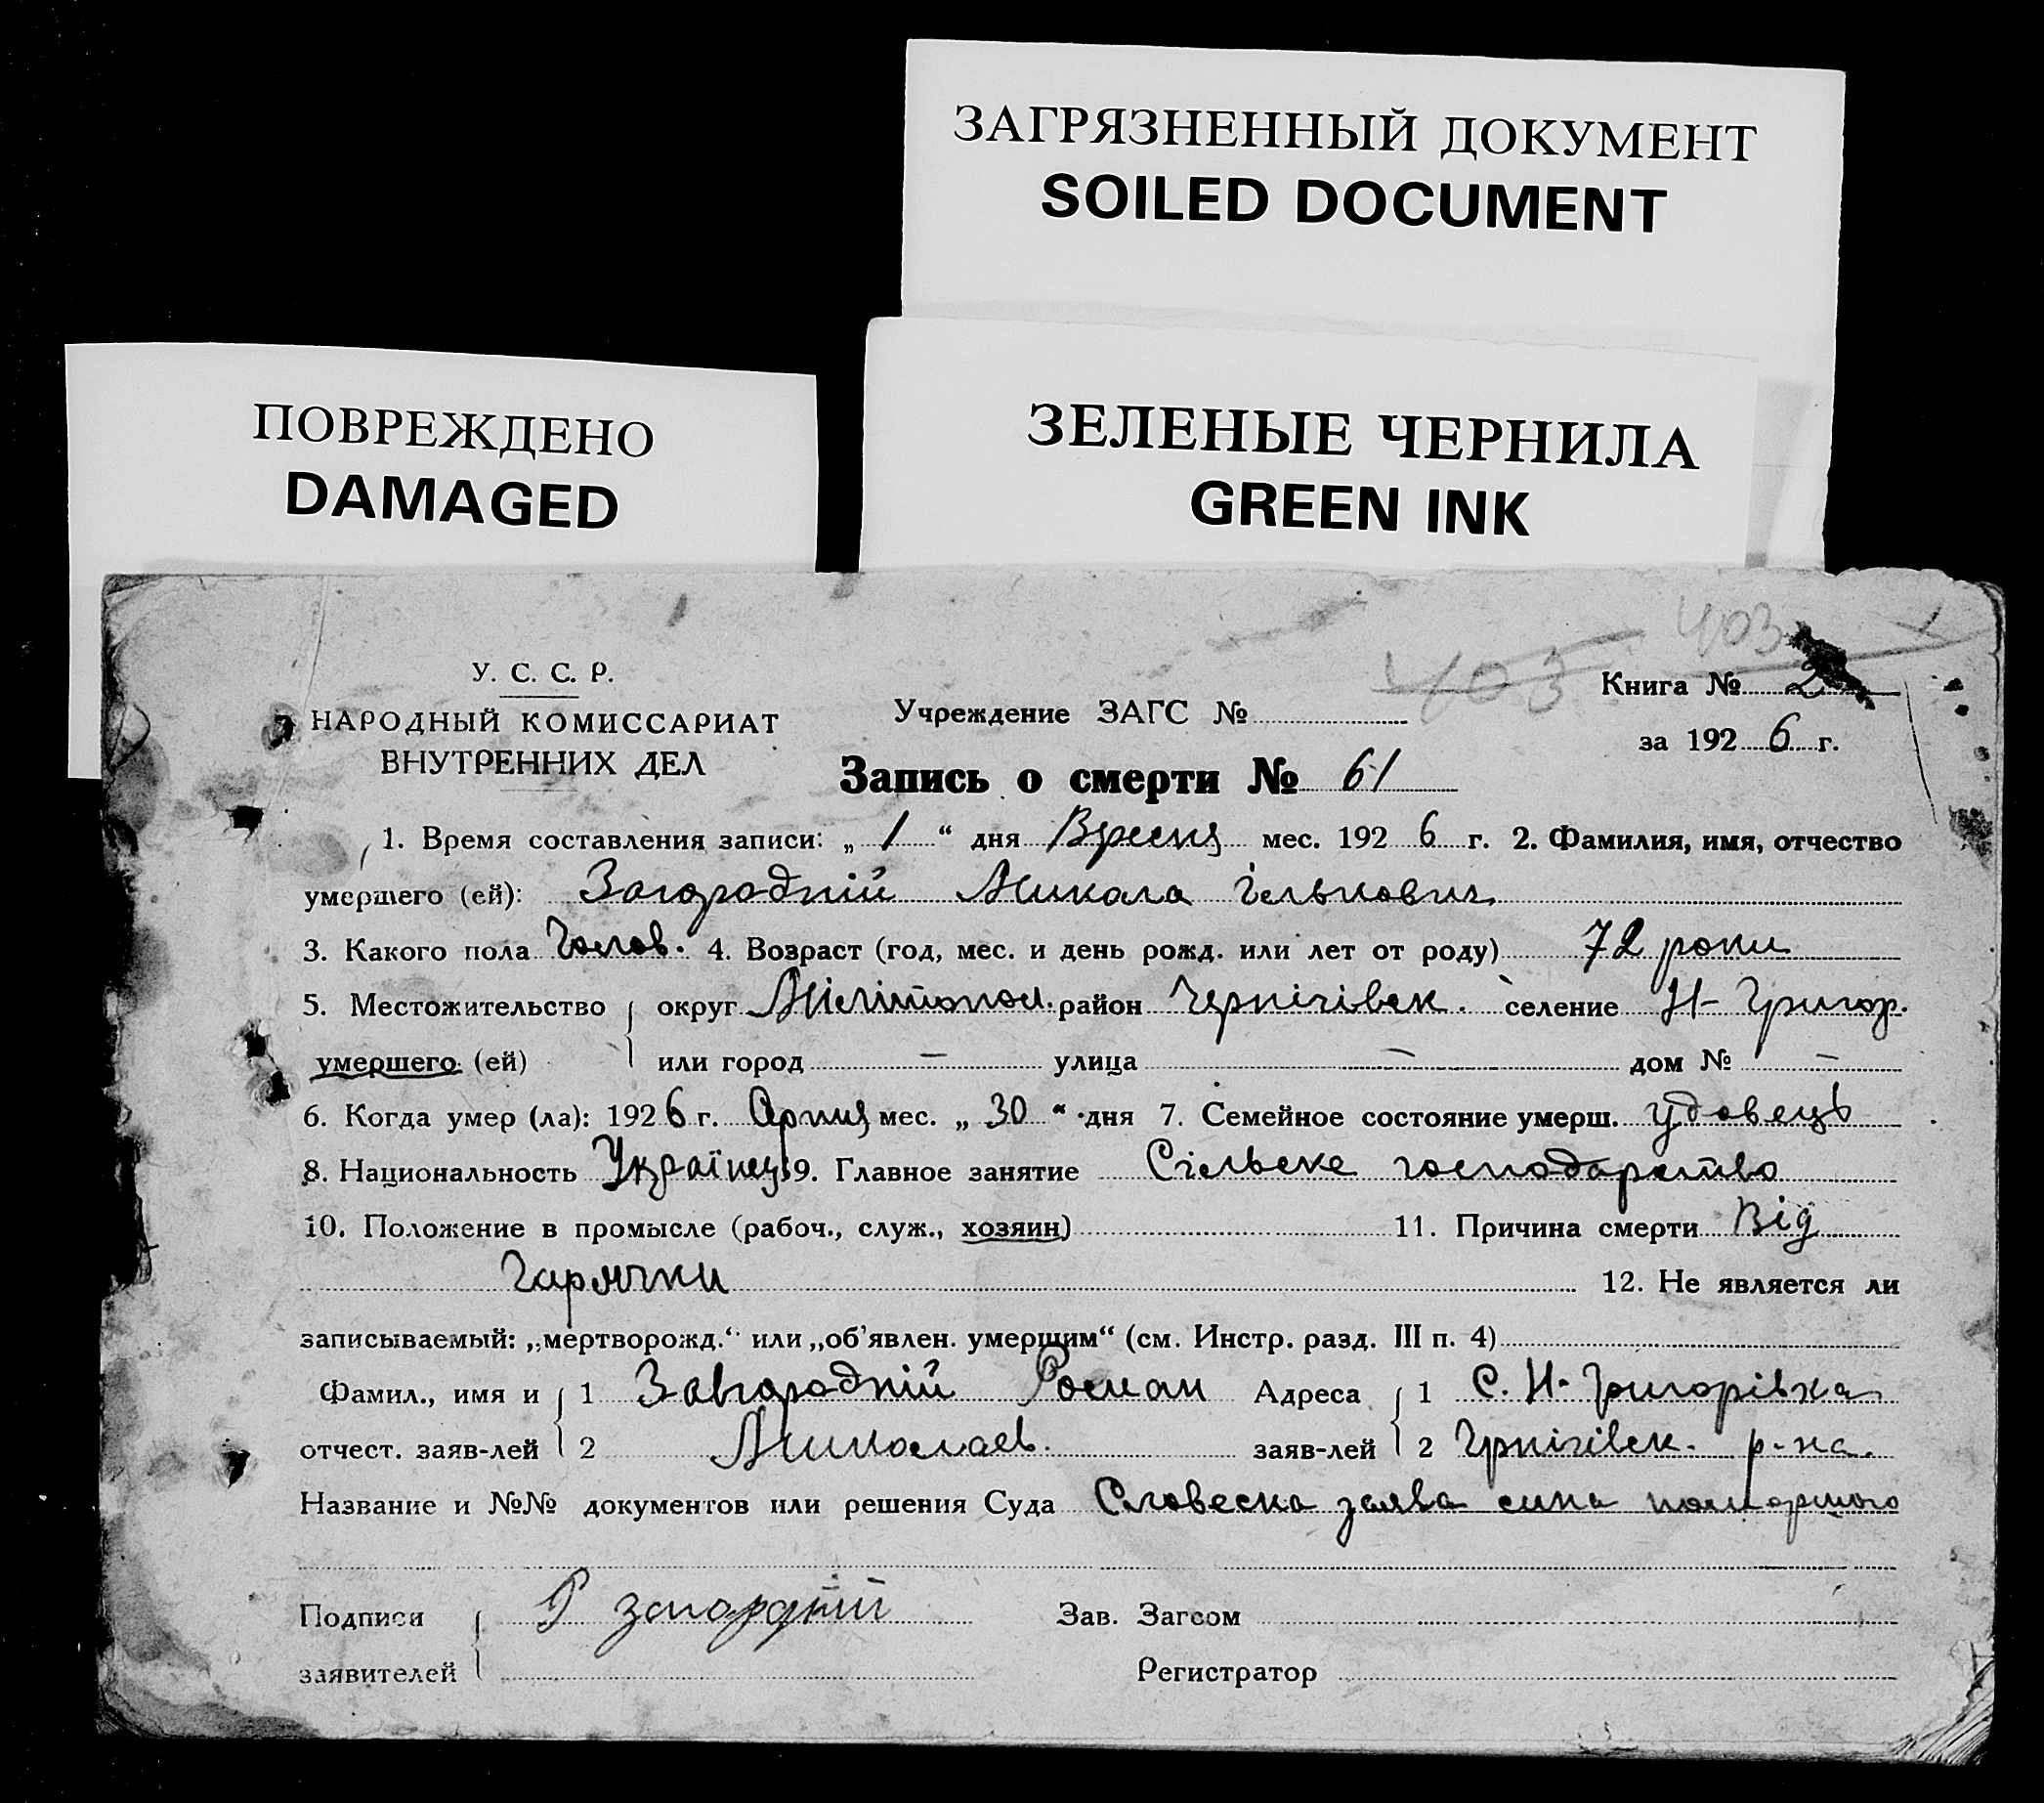 ЗАГРЯЗНЕННЫЙ ДОКУМЕНТ
SOILED DOCUMENT
ПОВРЕЖДЕНО
DAMAGED
ЗЕЛЕНЫЕ ЧЕРНИЛА
GREEN INK
403
403
У. С. С. Р.
НАРОДНЫЙ КОМИССАРИАТ
ВНУТРЕННИХ ДЕЛ
Учреждение ЗАГС №
Книга № 2
за 1926 г.
Запись о смерти № 61
1. Время составления записи: „ 1 “ дня Вресня мес. 1926 г. 2. Фамилия, имя, отчество
умершего (ей): Загородній Микола Ількович
3. Какого пола Чолов. 4. Возраст (год, мес. и день рожд. или лет от роду) 72 роки
5. Местожительство округ Мелітопол. район Чернігівск. селение Н-Григор.
умершего (ей) или город — улица — дом № —
6. Когда умер (ла): 1926 г. Серпня мес. „ 30 “ дня 7. Семейное состояние умерш. удовець
8. Национальность Українець 9. Главное занятие Сільске господарство
10. Положение в промысле (рабоч., служ., хозяин) 11. Причина смерти Від
гарячки 12. Не является ли
записываемый: „мертворожд.“ или „об'явлен. умершим“ (см. Инстр. разд. III п. 4)
Фамил., имя и 1 Завгородній Роман Адреса 1 С. Н-Григорівка
отчест. заяв-лей 2 Миколаев. заяв-лей 2 Чрнігівск. р-на.
Название и №№ документов или решения Суда Словеска заява сина помершого
Подписи Р Загордній Зав. Загсом
заявителей Регистратор